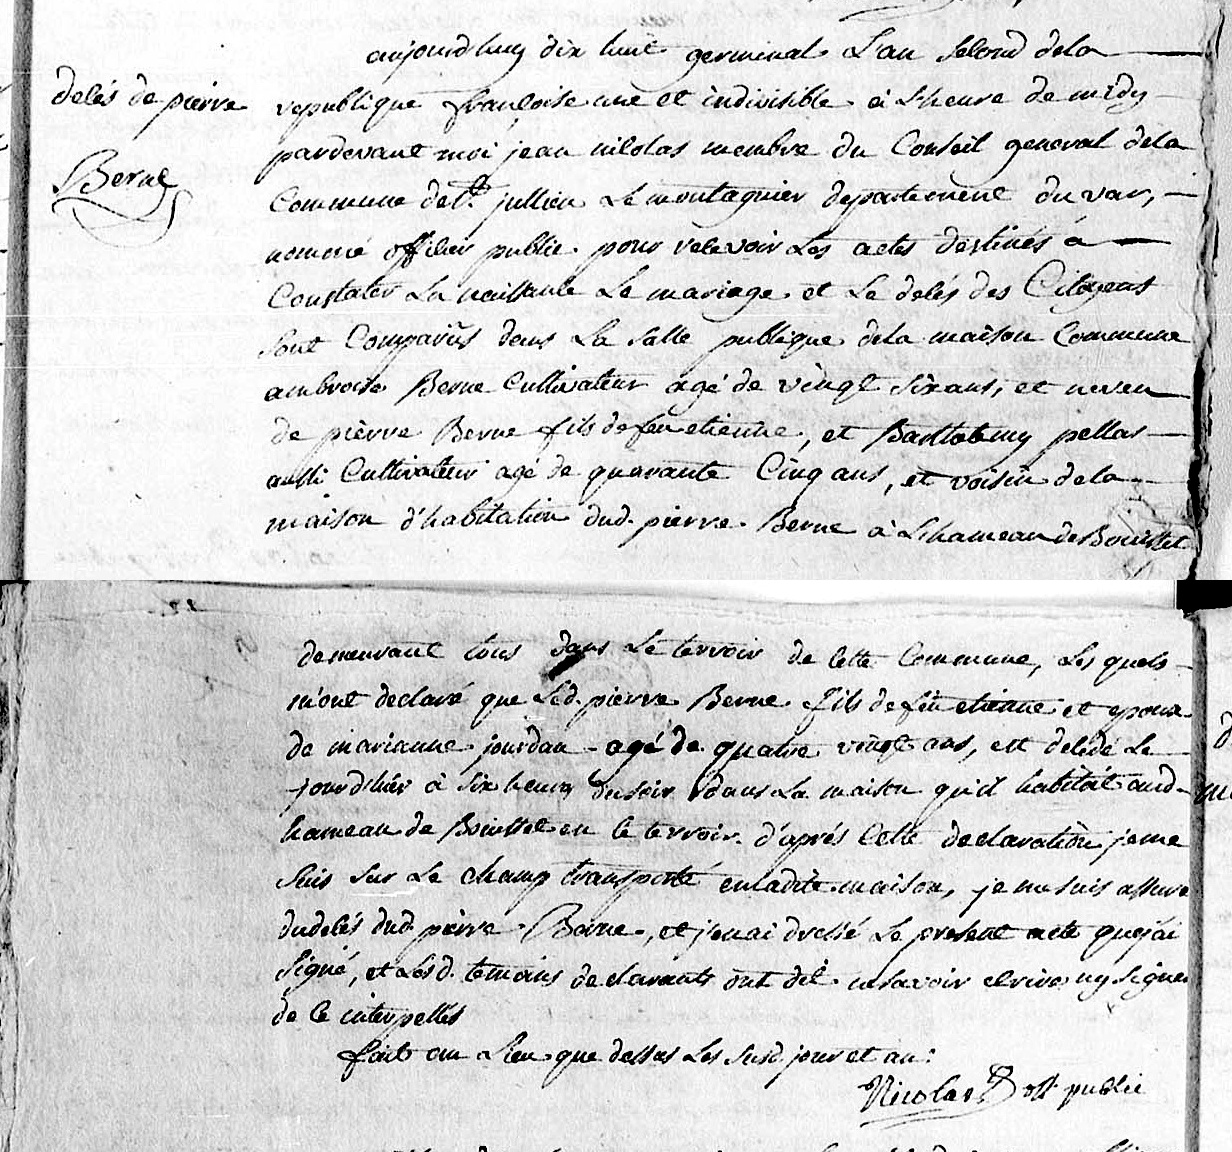 aujourdhuy dix huit germinal L'an second dela
decés de pierre
Berne
republique francoise une et indivisible à L'heure de midy
pardevant moi jean nicolas membre du Conseil general dela
Commune de St. jullien Le montagnier departement du var,
nommé officier public pour recevoir Les actes destinés a
Constater La naissance Le mariage et Le decés des Citoyens
sont Comparus dans La salle publique dela maison Commune
ambroise Berne Cultivateur agé de vingt six ans, et neveu
de pierre Berne fils de feu etienne, et Barthelemy pellas
aussi Cultivateur agé de quarante Cinq ans, et voisin dela
maison d'habitation dud. pierre Berne à L'hameau de Bouisset
demeurant tous dans Le terroir de Cette Commune, Les quels
m'ont declaré que Led. pierre Berne fils de feu etienne et epoux
de marianne jourdan agé de quatre vingt ans, est decedé Le
jour d'hier à six heures du soir dans La maison qu'il habitoit aud.
hameau de Bouisset en Ce terroir. d'aprés Cette declaration, je me
suis sur Le champ transporté en ladite maison, je me suis assuré
du decés dud. pierre Berne, et j'en ai dressé Le present acte que j'ai
signé, et Lesd. temoins declarants ont dit ne savoir ecrire ny signer
de Ce interpellés
fait au Lieu que dessus Les susd. jour et an:
Nicolas off. public